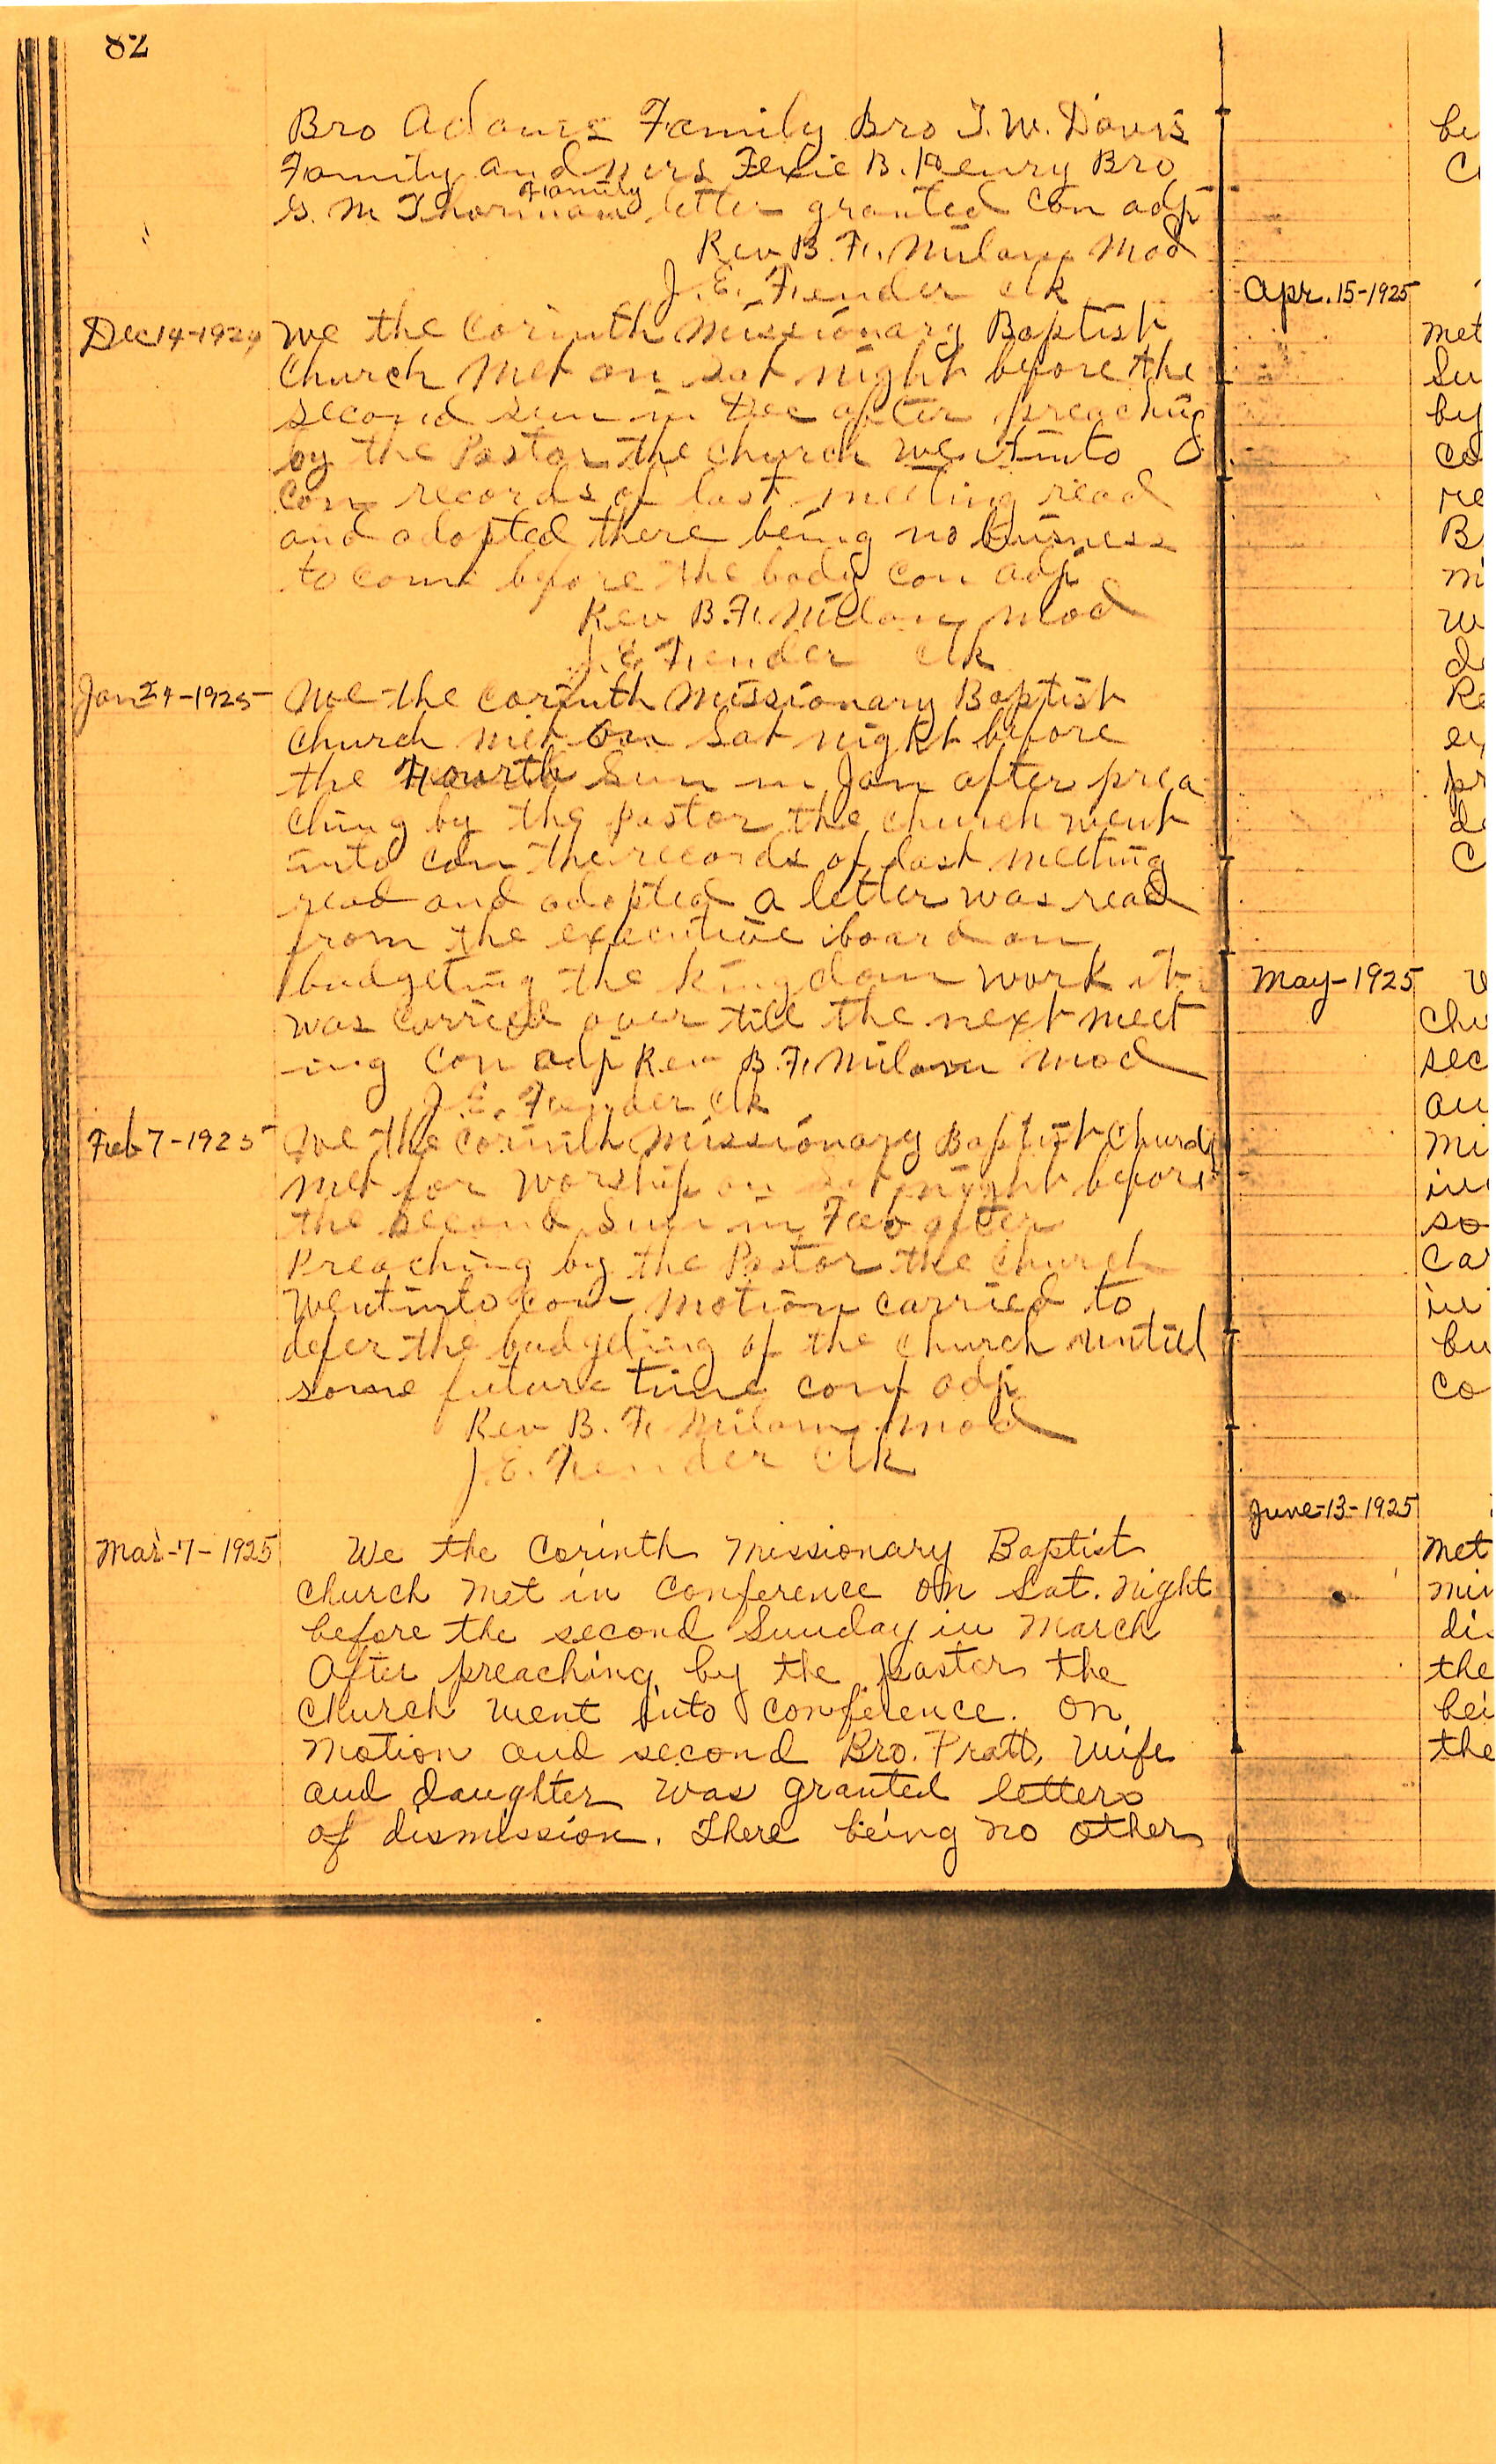 82
Bro Adams Family Bro T. W. Davis
Family and mrs Flexie B. Henry Bro
Family
G. M letter granted Con adj
Rev B. F. Milam Mod
J. E. Fender clk
Dec 14-1924 We the Corinth Missionary Baptist
Church Met on Sat night before the
second sun in Dec after preaching
by the Pastor the church went into
Con records of last meeting read
and adopted there being no business
to come before the body con adj
Rev B. F. Milam Mod
J. E. Fender Clk
Jan 24-1925 We the Corinth Missionary Baptist
Church met on Sat night before
the Fourth Sun in Jan after prea
ching by the pastor the church went
into con the records of last meeting
read and adopted a letter was read
from the executive board on
budgeting the kingdom work it
was carried over till the next meet
ing Con adj Rev B. F. Milam Mod
J. E. Fender Clk
Feb 7-1925 We the Corinth Missionary Baptist Church
met for worship on Sat night before
the second Sun in Feb after
Preaching by the Pastor the church
went into con motion carried to
defer the budgeting of the church untill
some future time conf adj
Rev B. F. Milam Mod
J. E. Fender Clk
Mar-7-1925 We the Corinth Missionary Baptist
church met in conference on Sat. night
before the second Sunday in March
After preaching by the pastor the
church went into conference. On
motion and second Bro. Pratt, wife
and daughter was granted letters
of dismission. There being no other
be
Apr. 15-1925
Met
Su
by
co
re
B
m
w
d
Re
ex
pr
de
C
May-1925
Chu
sec
au
Mi
in
so
Ca
in
bu
co
June-13-1925
Met
min
di
the
bei
the